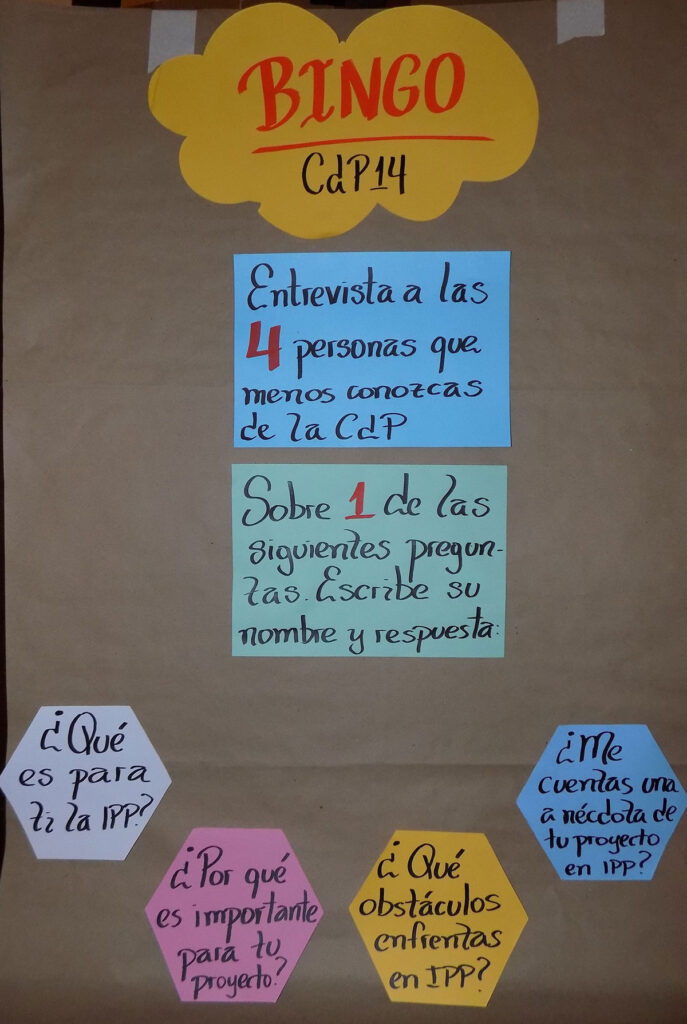 BINGO
CdP14
Entrevista a las
4 personas que
menos conozcas
de la CdP
Sobre 1 de las
siguientes pregun-
tas. Escribe su
nombre y respuesta:
¿Qué
es para
ti la IPP?
¿Por qué
es importante
para tu
proyecto?
¿Qué
obstáculos
enfrentas
en IPP?
¿Me
cuentas una
anécdota de
tu proyecto
en IPP?